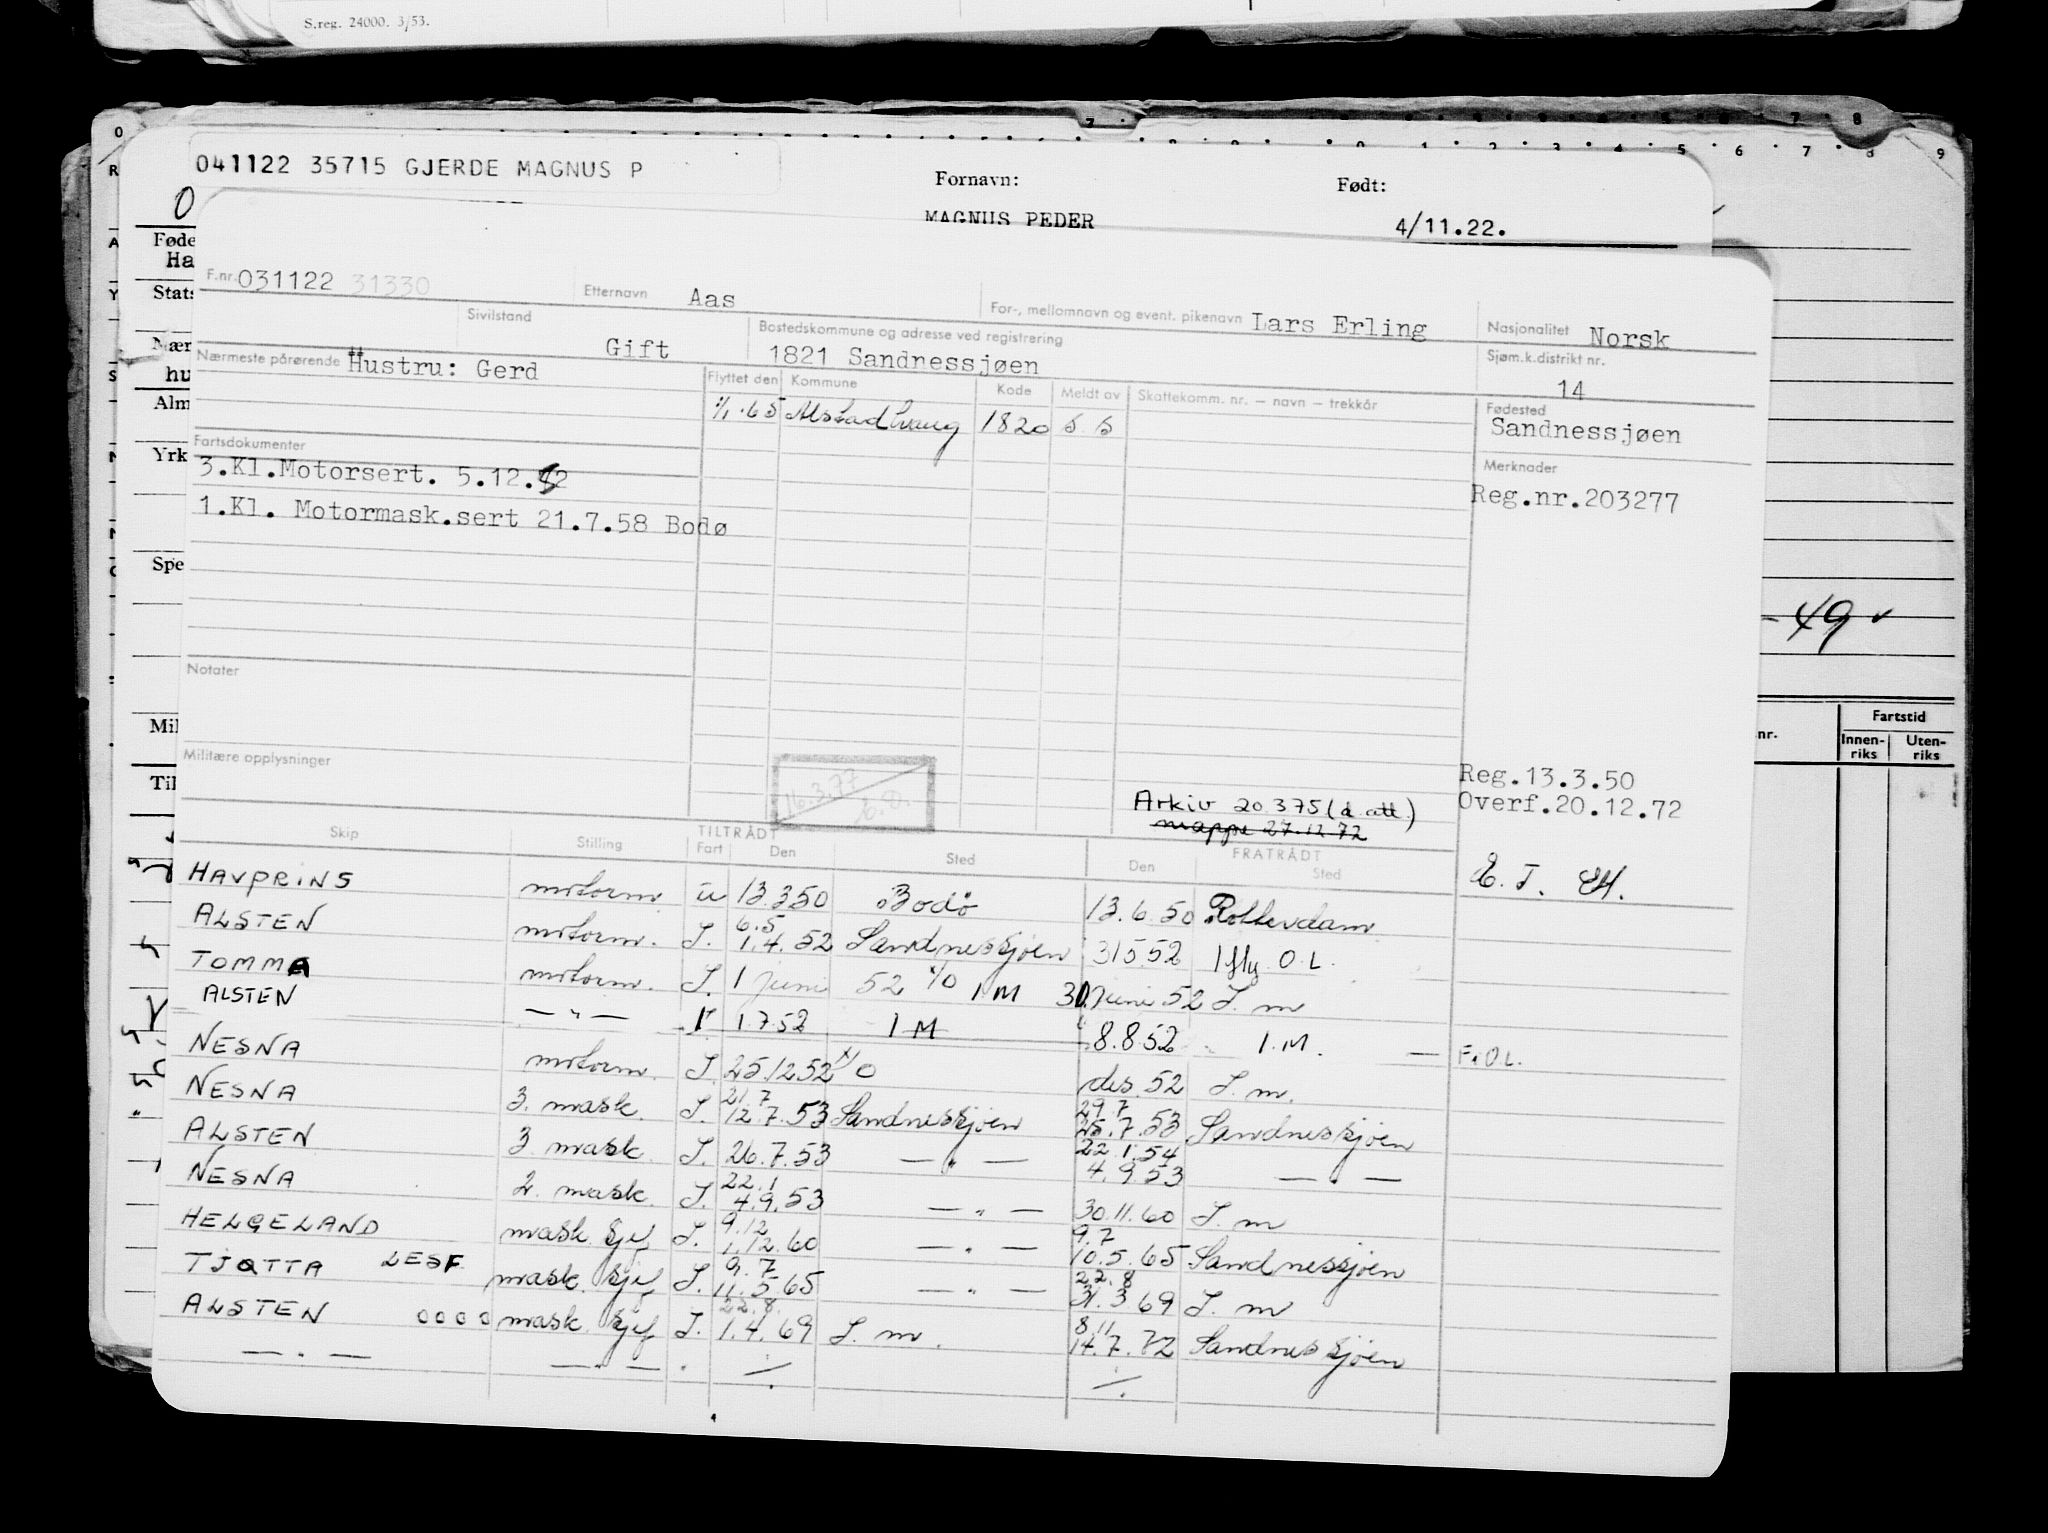 S.reg. 24000. 3/53.
041122 35715 GJERDE MAGNUS P
Fornavn:
Født:
MAGNUS PEDER
4/11.22.
F.nr. 031122 31330
Etternavn Aas
For-, mellomnavn og event. pikenavn Lars Erling
Nasjonalitet Norsk
Sivilstand Gift
Bostedskommune og adresse ved registrering
1821 Sandnessjøen
Sjøm.k.distrikt nr.
14
Nærmeste pårørende Hustru: Gerd
Flyttet den Kommune Kode Meldt av Skattekomm. nr. — navn — trekkår
1/1.65 Alstadhaug 1820 S.S
Fødested
Sandnessjøen
Fartsdokumenter
3.Kl.Motorsert. 5.12.52
1.Kl. Motormask.sert 21.7.58 Bodø
Merknader
Reg.nr.203277
-49
Notater
Fartstid
Innen-riks Uten-riks
Militære opplysninger
16.3.77
Reg.13.3.50
Overf.20.12.72
Arkiv 20375 (d. att.)
mappe 27.12.72
Skip Stilling TILTRÅDT Fart Den Sted FRATRÅDT Den Sted
HAVPRINS motorm. u 13.3.50 Bodö 13.6.50 Rotterdam
6.5
ALSTEN motorm. I. 1.4.52 Sandnessjøen 31.5.52 O.L.
TOMMA motorm. I. 1 Juni 52 1/0 I M 30. Juni 52 I. m
ALSTEN — " — I 1.7.52 I M 8.8.52 I.M. — F.OL.
NESNA motorm. I. 25.12.52 O des. 52 I. m.
21.7 29.7
NESNA 3. mask. I. 12.7.53 Sandnessjøen 25.7.53 Sandnessjøen
22.1.54
ALSTEN 3 mask. I. 26.7.53 — " — 4.9.53 — " —
22.1
NESNA 2. mask. I. 4.9.53 — " — 30.11.60 I. m
9.12 9.7
HELGELAND mask. sjef I. 1.12.60 — " — 10.5.65 Sandnessjøen
9.7 22.8
TJØTTA LESF mask. sjef I. 11.5.65 — " — 31.3.69 I. m
22.8. 8.11
ALSTEN 0000 mask. sjef I. 1.4.69 I. m. 14.7.72 Sandnessjøen
— " — — " —